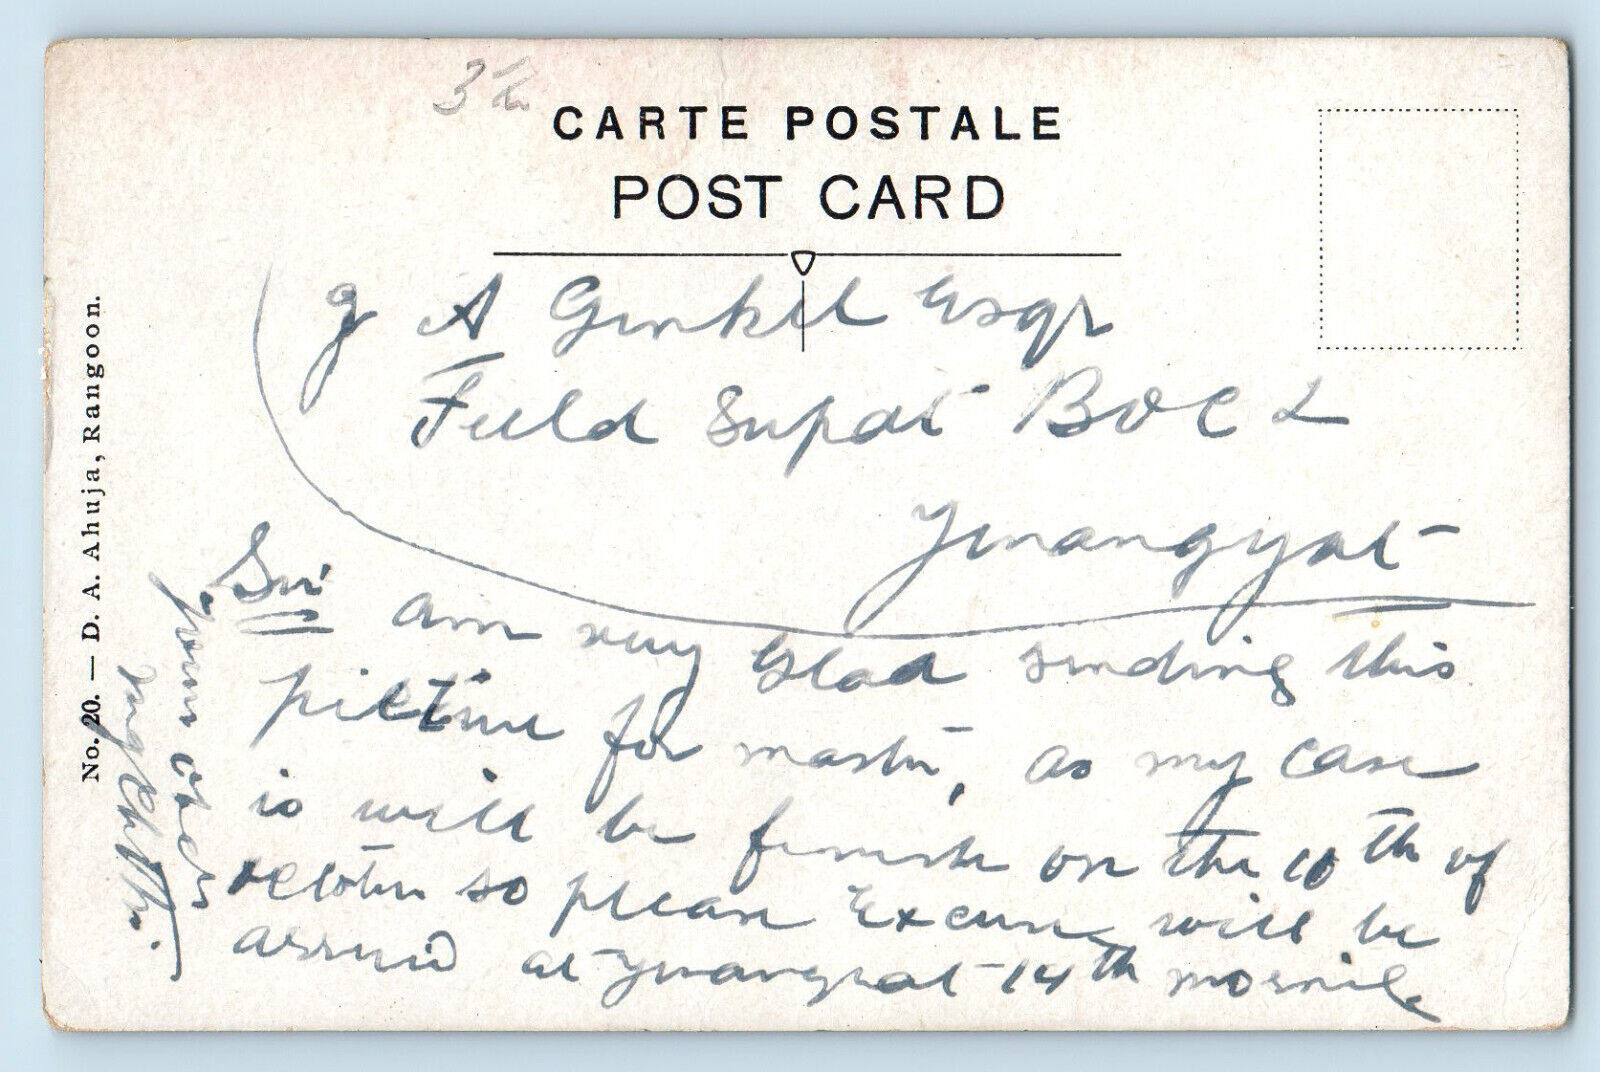 3
CARTE POSTALE
POST CARD
G A Ginkel Esqr
Field Supdt B O C L
Yenangyat
Sir
am very glad sending this
picture for master, as my case
is will be finish on the 10th of
october so please Excuse will be
arrived at Yenangyat 14th
Your
No. 20. — D. A. Ahuja, Rangoon.